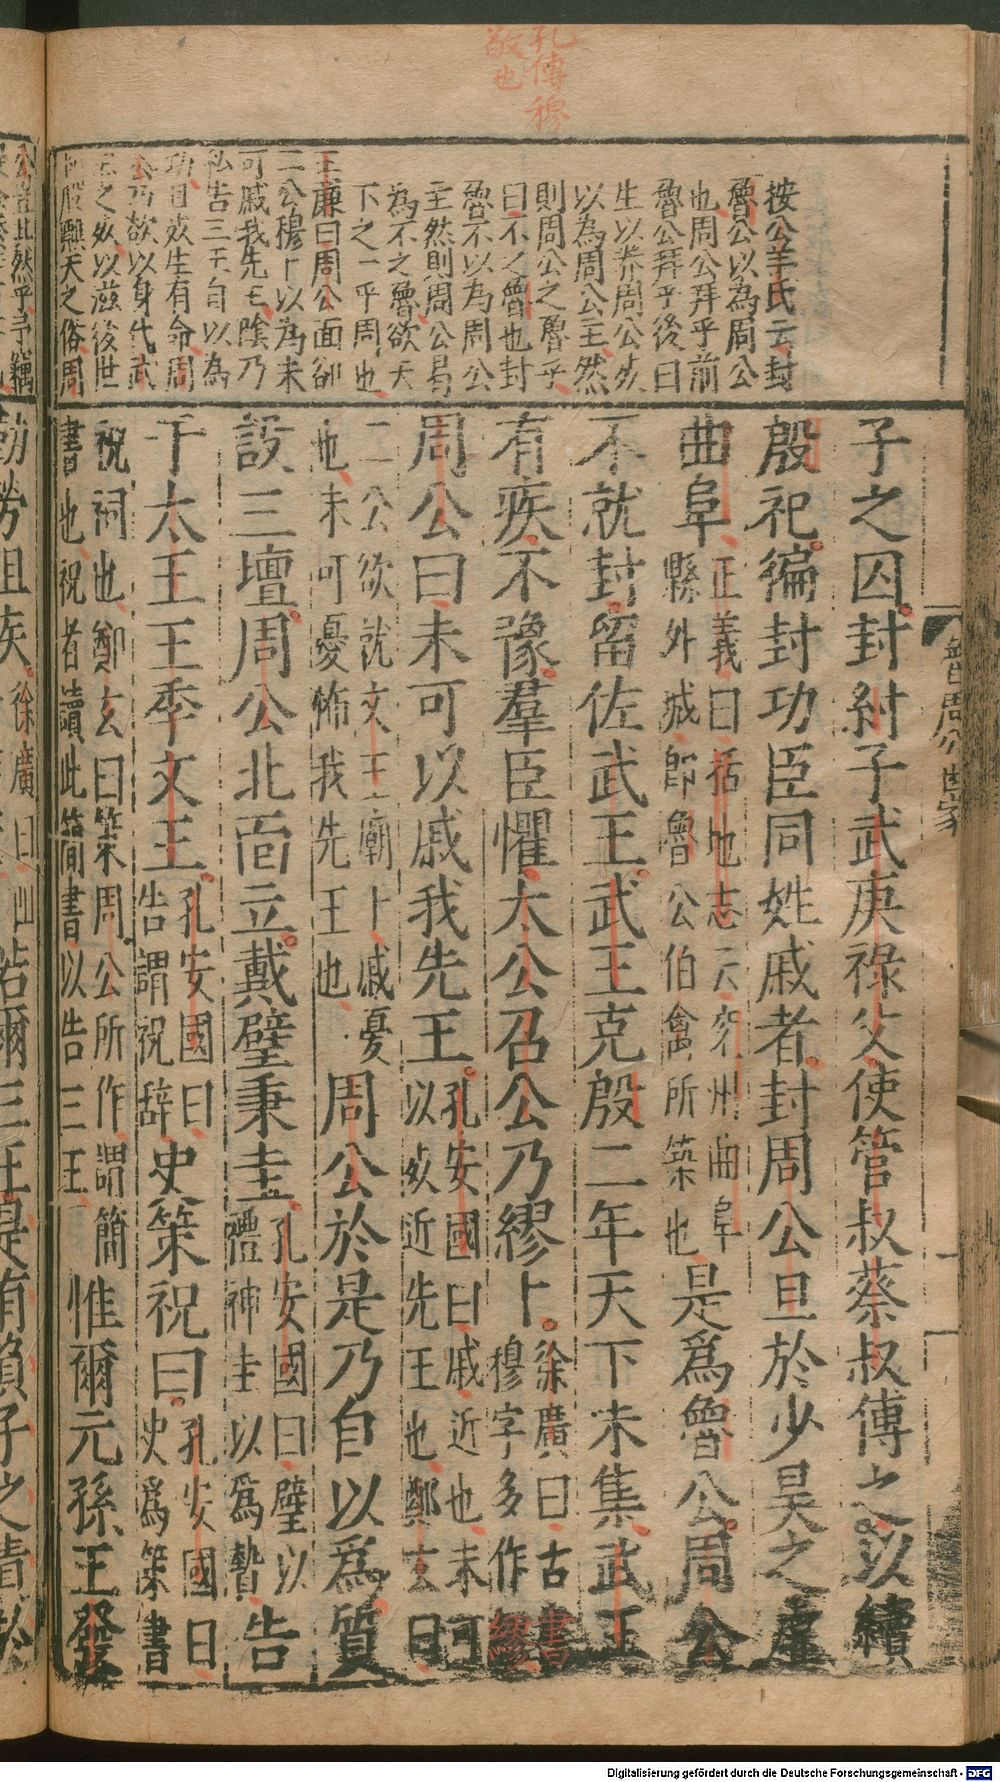 孔傳穆
敬也
按公羊氏云封
魯公以為周公
也周公拜乎前
魯公拜乎後曰
生以养周公死
以為周公主然
則周公之魯乎
曰不之魯也封
魯不以為周公
主然則周公曷
為不之魯欲天
下之一乎周也
王廉曰周公面郤
二公穆卜以為未
可戚我先王陰乃
私告三王自以為
功且死生有命周
公乃欲以身代武
王之死以滋後世
刲股禱天之俗周
子之囚封紂子武庚祿父使管叔蔡叔傳之以續
殷祀徧封功臣同姓戚者封周公旦於少昊之虛
曲阜正義曰括地志云兗州曲阜
縣外城即魯公伯禽所築也是爲魯公周公
不就封留佐武王武王克殷二年天下未集武王
有疾不豫羣臣懼太公召公乃繆卜徐廣曰古書
穆字多作繆
周公曰未可以戚我先王孔安國曰戚近也未可
以死近先王也鄭玄曰
二公欲就文王廟卜戚憂
也未可憂怖我先王也周公於是乃自以爲質
設三壇周公北面立戴璧秉圭孔安國曰璧以
禮神圭以爲贄告
于太王王季文王孔安國曰
告謂祝辞史策祝曰孔安國曰
史爲策書
祝詞也鄭玄曰策周公所作謂簡
書也祝者讀此簡書以告三王惟爾元孫王發
魯周公世家
勤勞阻疾徐廣曰
若爾三王是有負子之責於
Digitalisierung gefördert durch die Deutsche Forschungsgemeinschaft - DFG